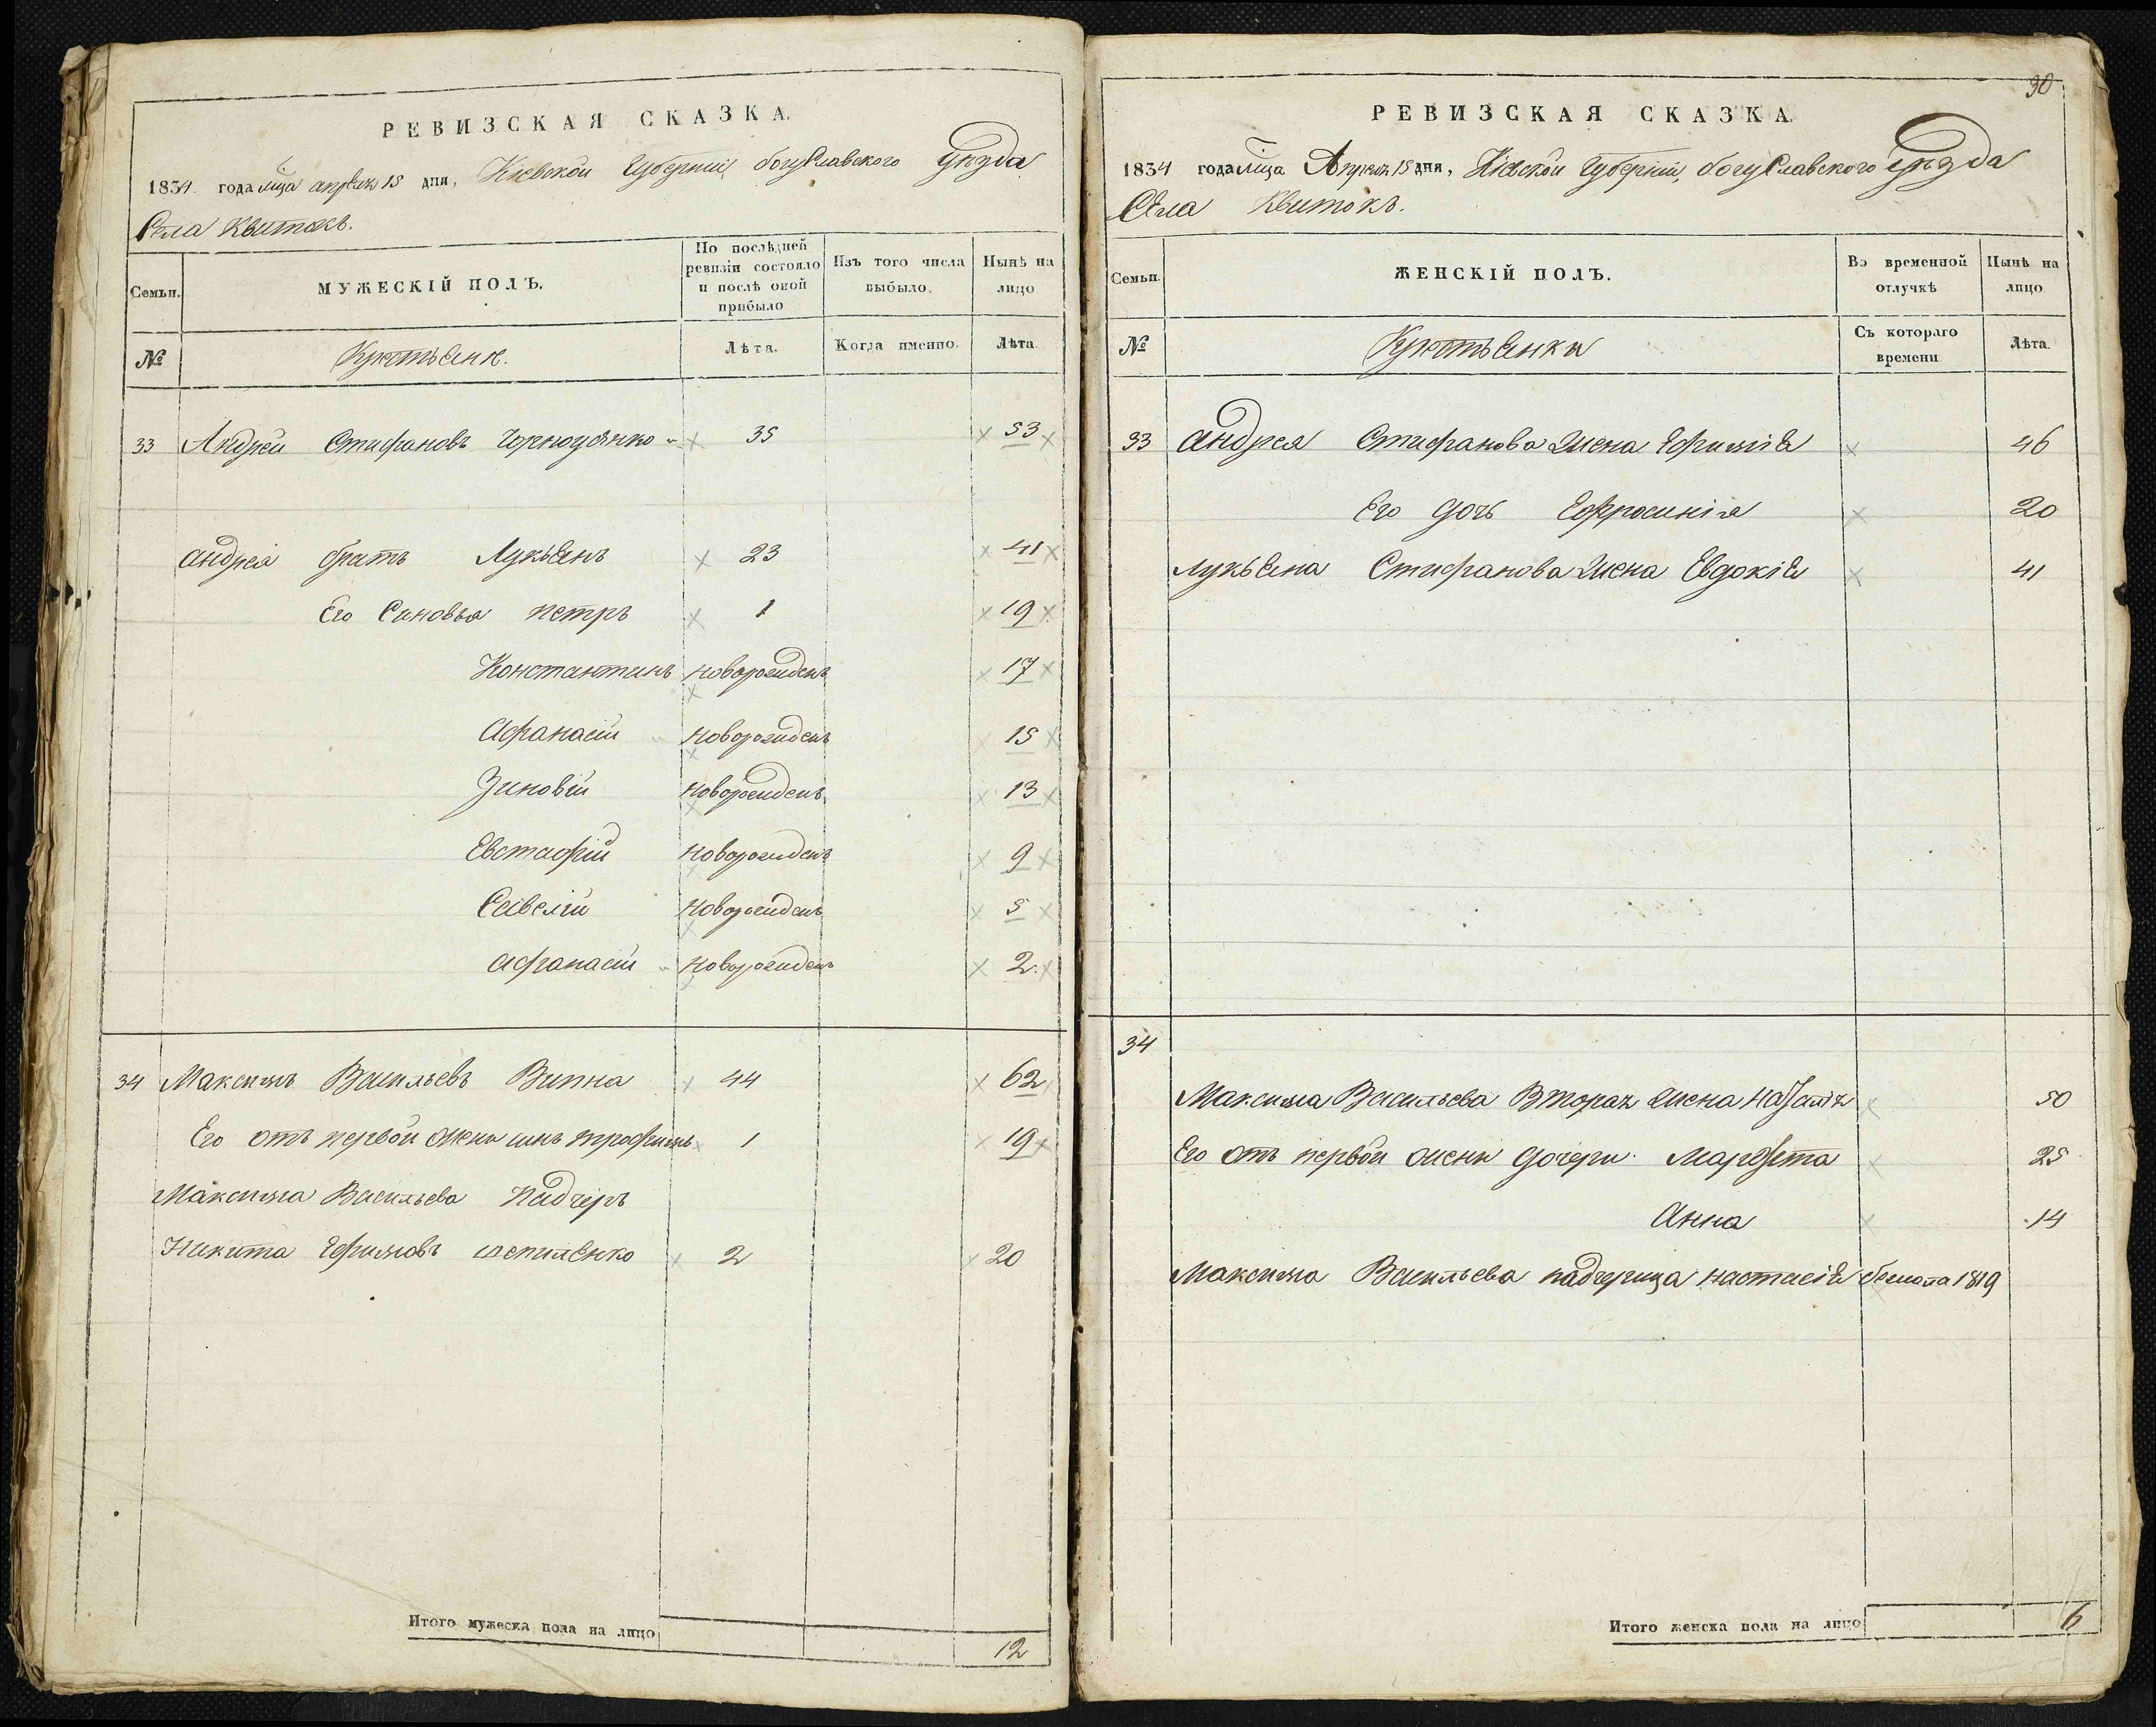 РЕВИЗСКАЯ СКАЗКА.
1834 года мца апреля 15 дня, Кіевской Губерніи, богуславского Уѣзда
Села Квитокъ.
Семьи.
МУЖЕСКІЙ ПОЛЪ.
По послѣдней ревизіи состояло и послѣ оной прибыло
Изъ того числа выбыло.
Нынѣ на лицо
№
Крестьяне.
Лѣта.
Когда именно.
Лѣта.
33 Андрей Стифановъ Чорноусенко 35 53
андрея братъ Лукьянъ 23 41
Его Синовья петръ 1 19
Константинъ новорожденъ 17
Афанасій новорожденъ 15
Зиновій новорожденъ 13
Евстафій новорожденъ 9
Савелій новорожденъ 5
афанасій новорожденъ 2
34 Максимъ Васильевъ Випна 44 62
Его отъ первой жены синъ трофимъ 1 19
Максима Васильева Падчеръ
Никита Ефимовъ 2 20
Итого мужеска пола на лицо
12
30
РЕВИЗСКАЯ СКАЗКА.
1834 года мца Апреля 15 дня, Кіевской Губерніи, богуславского Уѣзда
Села Квитокъ.
Семьи.
ЖЕНСКІЙ ПОЛЪ.
Во временной отлучкѣ
Нынѣ на лицо
№
Крестьянки
Съ котораго времени
Лѣта.
33 андрея Стифанова жена Ефимія 46
Его дочь Ефросинія 20
Лукьяна Стифанова жена Евдокія 41
34
Максима Васильева Вторая жена Наталія 50
Его отъ первой жены дочери Марфта 25
Анна 14
Максима Васильева падчерица настасія бежала 1819
Итого женска пола на лицо
6